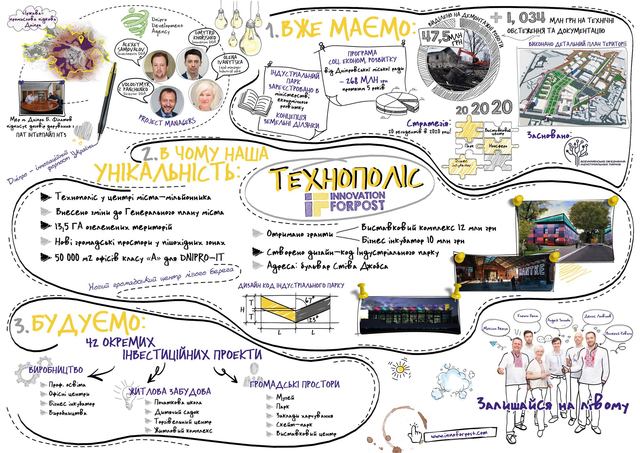 Dnipro
Development
Agency
PROJECT MANAGERS
1. ВЖЕ МАЄМО:
ПРОГРАМА
СОЦ. ЕКОНОМ. РОЗВИТКУ
від Дніпровської міської ради
~268 МЛН грн
протягом 5 років
ІНДУСТРІАЛЬНИЙ
ПАРК
ЗАРЕЄСТРОВАНО В
КОНЦЕПЦІЯ
ЗЕМЕЛЬНІ ДІЛЯНКИ
ВИДІЛЕНО НА ДЕМОНТАЖНІ РОБОТИ
47,5 МЛН
ГРН
+ 1,034 МЛН ГРН НА ТЕХНІЧНІ
ОБСТЕЖЕННЯ ТА ДОКУМЕНТАЦІЮ
ВИКОНАНО ДЕТАЛЬНИЙ ПЛАН ТЕРИТОРІЇ
Стратегія:
20 20 20
Засновано:
2. В ЧОМУ НАША
УНІКАЛЬНІСТЬ:
Технополіс у центрі міста-мільйонника
Внесено зміни до Генерального плану міста
13,5 ГА озеленених територій
Нові громадські простори у пішохідних зонах
50 000 м2 офісів класу «А» для DNIPRO-IT
Новий громадський центр лівого берега
ТЕХНОПОЛІС
INNOVATION
FORPOST
Отримано гранти
Виставковий комплекс 12 млн грн
Бізнес інкубатор 10 млн грн
Створено дизайн-код Індустріального парку
Адреса: бульвар Стіва Джобса
ДИЗАЙН КОД ІНДУСТРІАЛЬНОГО ПАРКУ
3. БУДУЄМО:
42 ОКРЕМИХ
ІНВЕСТИЦІЙНИХ ПРОЕКТИ
ВИРОБНИЦТВО
Проф. освіта
Офісні центри
Бізнес інкубатор
Виробництва
ЖИТЛОВА ЗАБУДОВА
Початкова школа
Дитячий садок
Торгівельний центр
Житловий комплекс
ГРОМАДСЬКІ ПРОСТОРИ
Музей
Парк
Заклади харчування
Скейт-парк
Виставковий центр
www.innoforpost.com
Залишайся на лівому